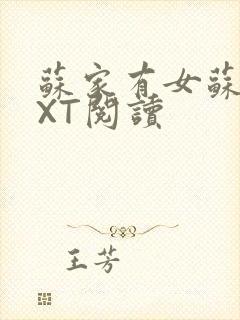 蘇家有女蘇
XT閱讀
王芳